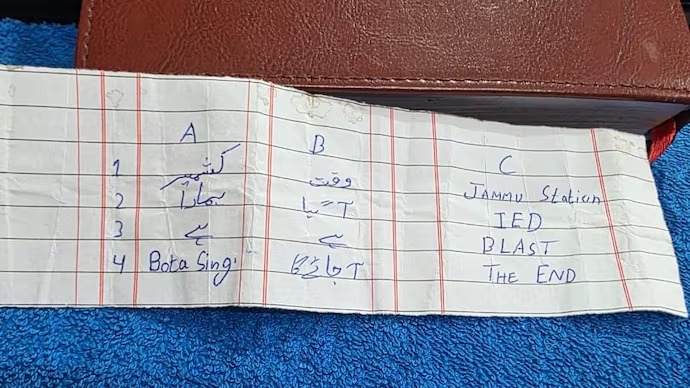 A B C
1 کشمیر وقت JAMMU Station
2 ہمارا آ گیا IED
3 ہے ہے BLAST
4 Bota Sing آ جائے گا THE END